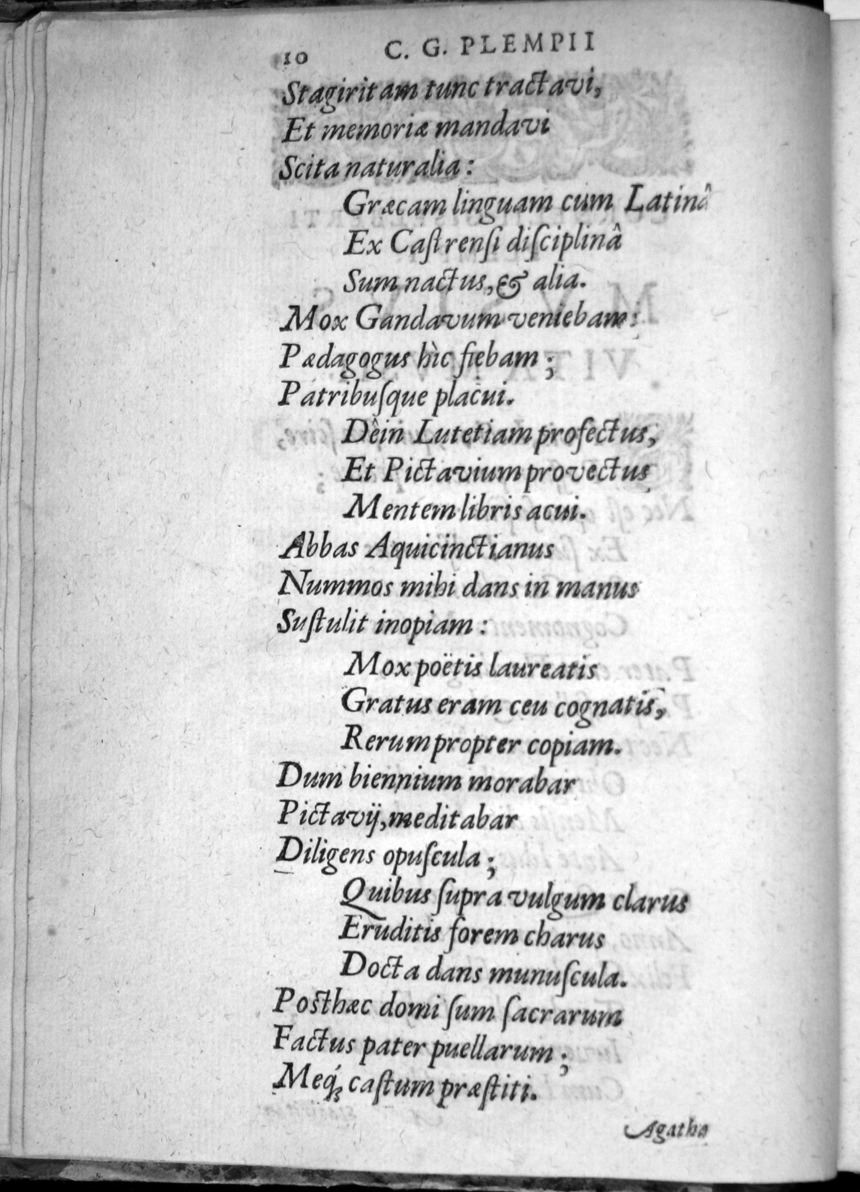 10 C. G. PLEMPII
Stagiritam tunc tractavi,
Et memoriæ mandavi
Scita naturalia:
Græcam linguam cum Latinâ
Ex Caſtrenſi diſciplinâ
Sum nactus, & alia.
Mox Gandavum veniebam:
Pædagogus hìc fiebam;
Patribuſque placui.
Dèin Lutetiam profectus,
Et Pictavium provectus
Mentem libris acui.
Abbas Aquicinctianus
Nummos mihi dans in manus
Suſtulit inopiam:
Mox poëtis laureatis
Gratus eram ceu cognatis,
Rerum propter copiam.
Dum biennium morabar
Pictavij, meditabar
Diligens opuſcula;
Quibus ſupra vulgum clarus
Eruditis forem charus
Docta dans munuſcula.
Poſthæc domi ſum ſacrarum
Factus pater puellarum;
Meq́; caſtum præſtiti.
Agatha